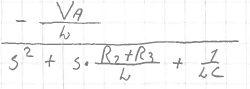 - V_A / L
s² + s · (R₂+R₃)/L + 1/LC